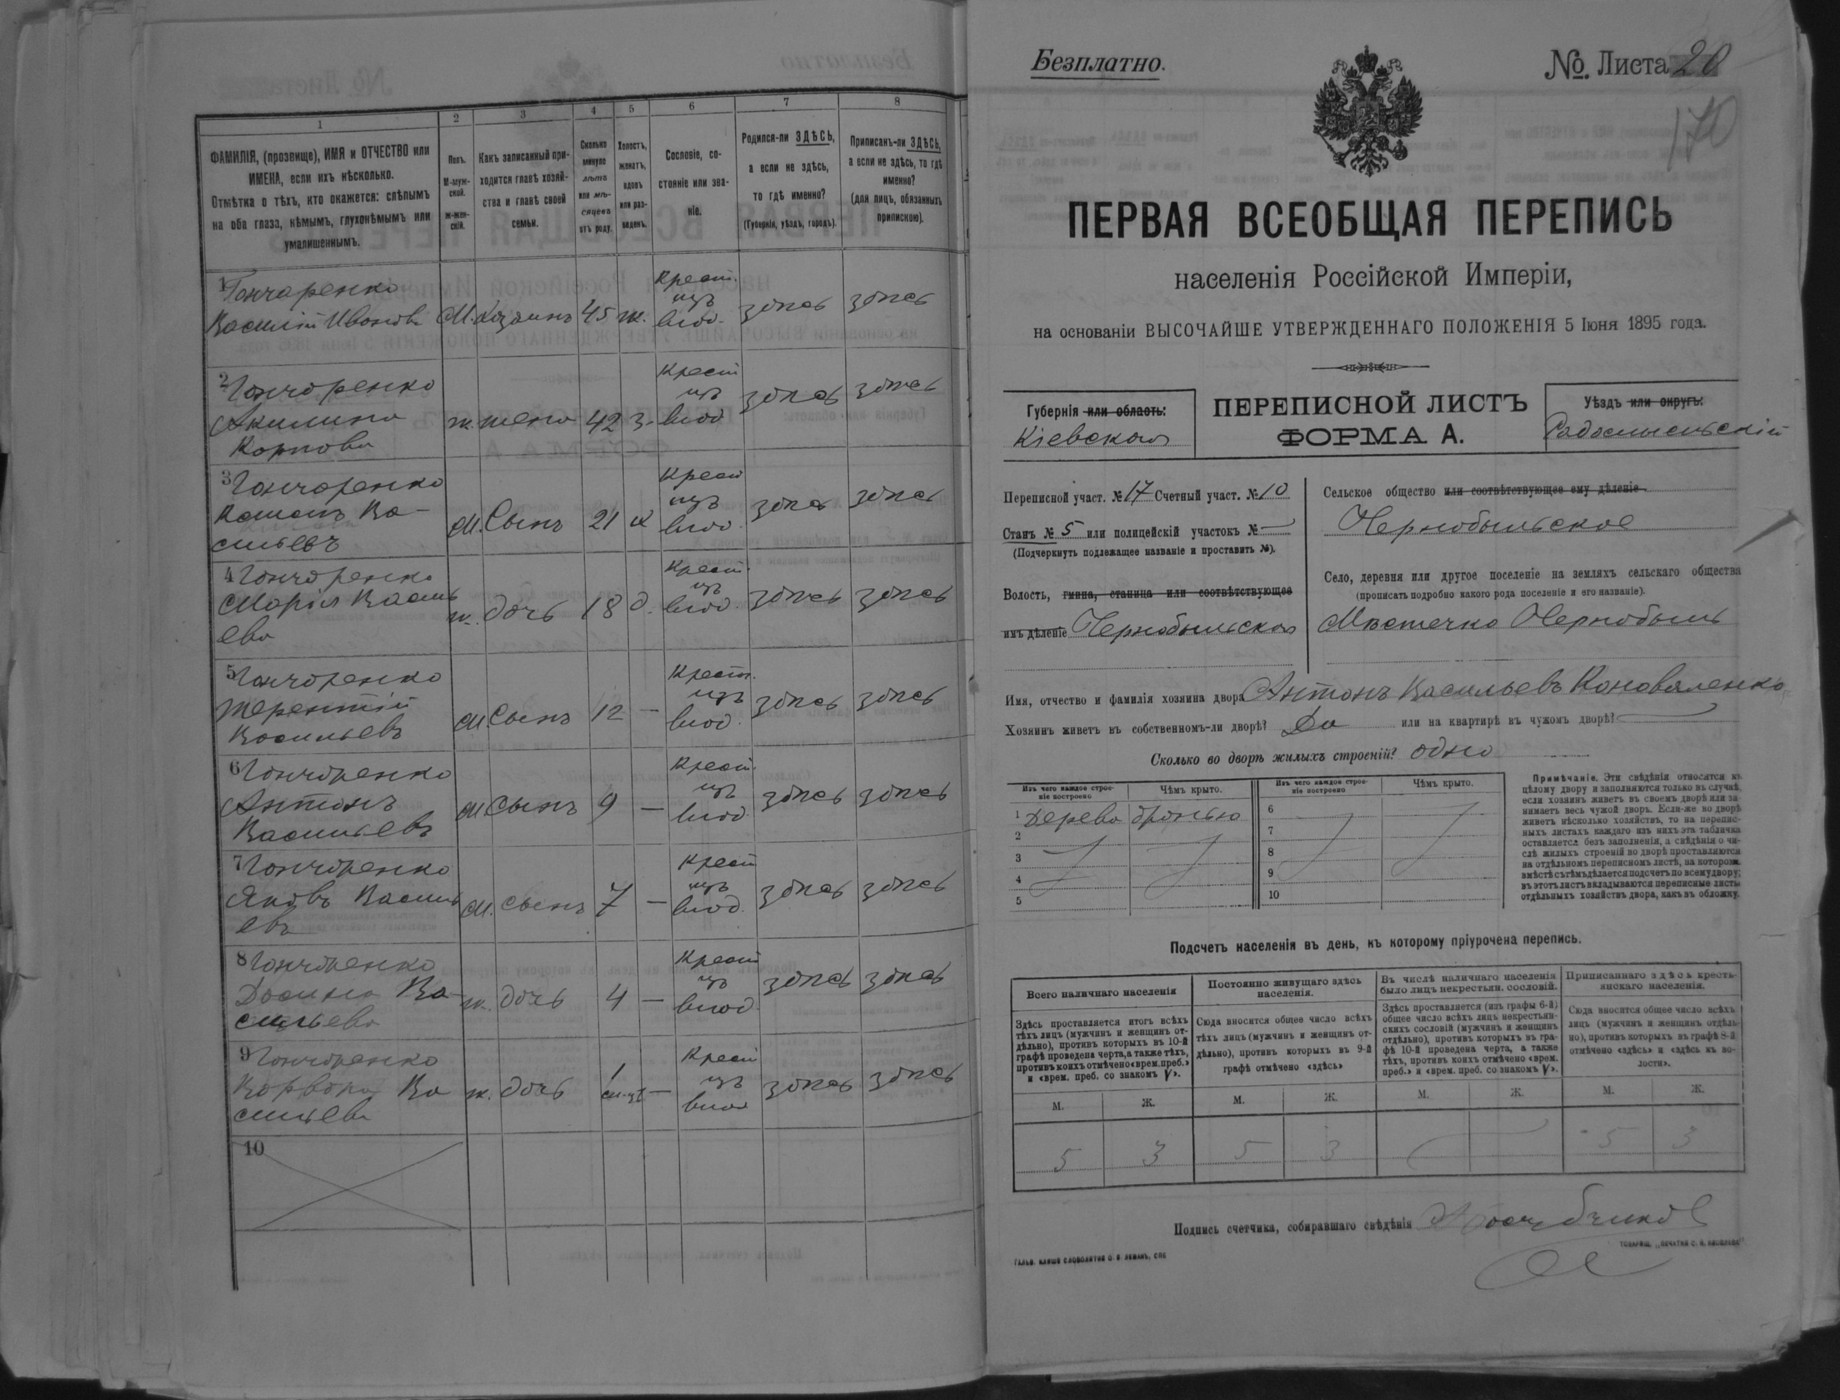 1
2
3
4
5
6
7
8
ФАМИЛІЯ, (прозвище), ИМЯ и ОТЧЕСТВО или
ИМЕНА, если ихъ нѣсколько.
Отмѣтка о тѣхъ, кто окажется: слѣпымъ
на оба глаза, нѣмымъ, глухонѣмымъ или
умалишеннымъ.
Полъ.
М-муж-
ской.
Ж-жен-
скій.
Какъ записанный при-
ходится главѣ хозяй-
ства и главѣ своей
семьи.
Сколько
минуло
лѣтъ
или мѣ-
сяцевъ
отъ роду.
Холостъ,
женатъ,
вдовъ
или раз-
веденъ.
Сословіе, со-
стояніе или зва-
ніе.
Родился-ли ЗДѢСЬ,
а если не здѣсь,
то гдѣ именно?
(Губернія, уѣздъ, городъ).
Приписанъ-ли ЗДѢСЬ,
а если не здѣсь, то гдѣ
именно?
(для лицъ, обязанныхъ
припискою).
1 Гончаренко
Василій Ивановъ М. хозяинъ 45 ж. Крест. изъ влад. здѣсь здѣсь
2 Гончаренко
Акилина
Карпова ж. жена 42 з. Крест. изъ влад. здѣсь здѣсь
3 Гончаренко
Романъ Ва-
сильевъ М. Сынъ 21 х Крест. изъ влад. здѣсь здѣсь
4 Гончаренко
Марія Василь
ева ж. дочь 18 д. Крест. изъ влад. здѣсь здѣсь
5 Гончаренко
Терентій
Васильевъ М. Сынъ 12 — Крест. изъ влад. здѣсь здѣсь
6 Гончаренко
Антонъ
Васильевъ М. Сынъ 9 — Крест. изъ влад. здѣсь здѣсь
7 Гончаренко
Яковъ Василь
евъ М. сынъ 7 — Крест. изъ влад. здѣсь здѣсь
8 Гончаренко
Ва-
сильева ж. дочь 4 — Крест. изъ влад. здѣсь здѣсь
9 Гончаренко
Варвара Ва
сильева ж. дочь 1 — Крест. изъ влад. здѣсь здѣсь
10
Безплатно.
№ Листа 20
170
ПЕРВАЯ ВСЕОБЩАЯ ПЕРЕПИСЬ
населенія Россійской Имперіи,
на основаніи ВЫСОЧАЙШЕ УТВЕРЖДЕННАГО ПОЛОЖЕНІЯ 5 Іюня 1895 года.
Губернія или область:
Кіевская
ПЕРЕПИСНОЙ ЛИСТЪ
ФОРМА А.
Уѣздъ или округъ:
Радомысльскій
Переписной участ. № 17 Счетный участ. № 10
Станъ № 5 или полицейскій участокъ № —
(Подчеркнуть подлежащее названіе и проставить №).
Волость, гмина, станица или соотвѣтствующее
имъ дѣленіе Чернобыльская
Сельское общество или соотвѣтствующее ему дѣленіе
Чернобыльское
Село, деревня или другое поселеніе на земляхъ сельскаго общества
(прописать подробно какого рода поселеніе и его названіе).
Мѣстечко Чернобыль
Имя, отчество и фамилія хозяина двора Антонъ Васильевъ Коноваленко
Хозяинъ живетъ въ собственномъ-ли дворѣ? Да или на квартирѣ въ чужомъ дворѣ? —
Сколько во дворѣ жилыхъ строеній? одно
Изъ чего каждое строе-
ніе построено
Чѣмъ крыто.
Изъ чего каждое строе-
ніе построено
Чѣмъ крыто.
1 Дерева дранью
2
3
4
5
6
7
8
9
10
Примѣчаніе. Эти свѣдѣнія относятся къ
цѣлому двору и заполняются только въ случаѣ,
если хозяинъ живетъ въ своемъ дворѣ или за-
нимаетъ весь чужой дворъ. Если-же во дворѣ
живетъ нѣсколько хозяйствъ, то на перепис-
ныхъ листахъ каждаго изъ нихъ эта табличка
оставляется безъ заполненія, а свѣдѣнія о чи-
слѣ жилыхъ строеній во дворѣ проставляются
на отдѣльномъ переписномъ листѣ, на которомъ
вмѣстѣ съ тѣмъ дѣлается подсчетъ по всему двору;
въ этотъ листъ вкладываются переписные листы
отдѣльныхъ хозяйствъ двора, какъ въ обложку.
Подсчетъ населенія въ день, къ которому пріурочена перепись.
Всего наличнаго населенія
Постоянно живущаго здѣсь
населенія.
Въ числѣ наличнаго населенія
было лицъ некрестьян. сословій.
Приписаннаго здѣсь кресть-
янскаго населенія.
Здѣсь проставляется итогъ всѣхъ
тѣхъ лицъ (мужчинъ и женщинъ от-
дѣльно), противъ которыхъ въ 10-й
графѣ проведена черта, а также тѣхъ,
противъ коихъ отмѣчено «врем. преб.»
и «врем. преб. со знакомъ V».
Сюда вносится общее число всѣхъ
тѣхъ лицъ (мужчинъ и женщинъ от-
дѣльно), противъ которыхъ въ 9-й
графѣ отмѣчено «здѣсь»
Здѣсь проставляется (изъ графы 6-й)
общее число всѣхъ лицъ некрестьян-
скихъ сословій (мужчинъ и женщинъ
отдѣльно), противъ которыхъ въ гра-
фѣ 10-й проведена черта, а также
тѣхъ, противъ коихъ отмѣчено «врем.
преб.» и «врем. преб. со знакомъ V».
Сюда вносится общее число всѣхъ
лицъ (мужчинъ и женщинъ отдѣль-
но), противъ которыхъ въ графѣ 8-й
отмѣчено «здѣсь» и «здѣсь въ во-
лости».
М. Ж. М. Ж. М. Ж. М. Ж.
5 3 5 3 5 3
Подпись счетчика, собиравшаго свѣдѣнія